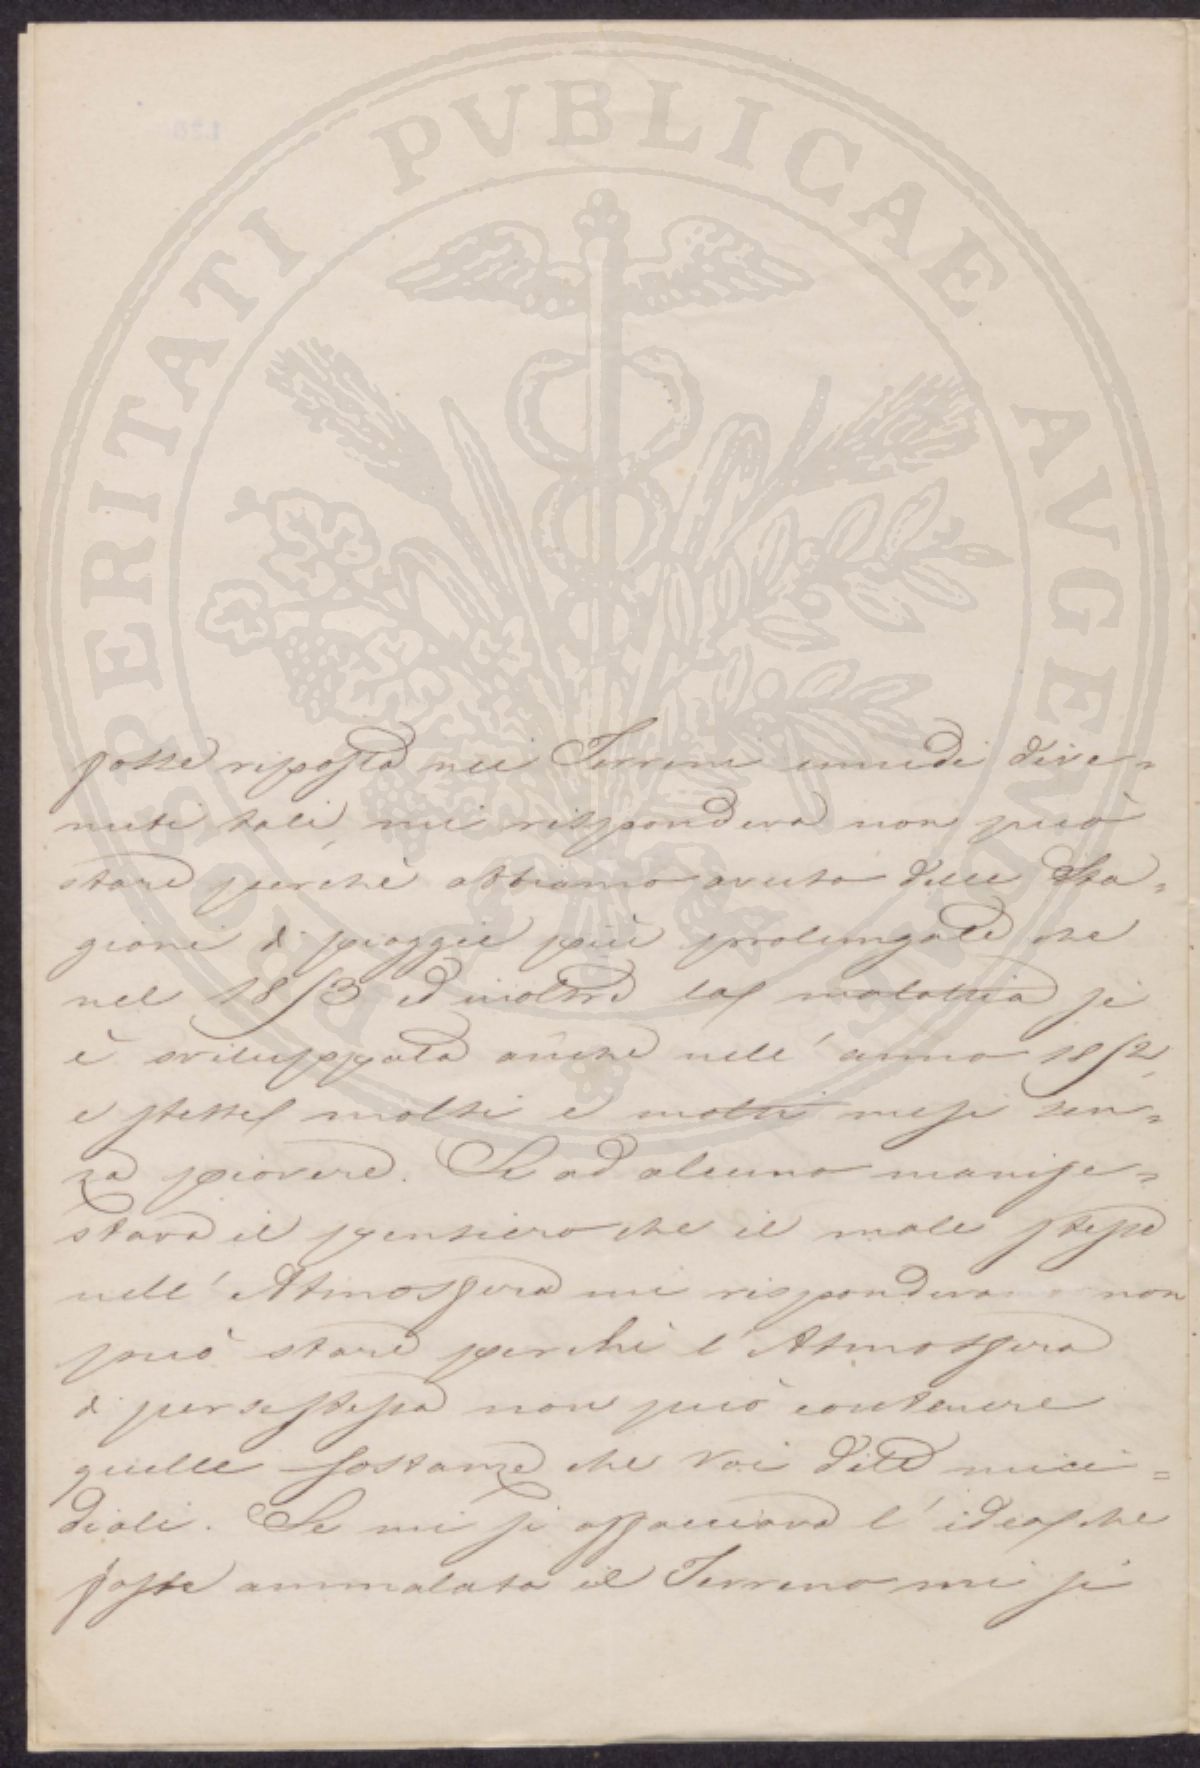 PROSPERITATI PUBLICAE AVGENDAE
fosse riposta nei Terreni umidi dive=
nuti tali, mi rispondeva non può
stare perchè abbiamo avuto delle Sta=
gioni di pioggie più prolungate che
nel 1853 ed inoltre la malattia si
è sviluppata anche nell' anno 1852
e stette molti e molti mesi sen=
za piovere. Se ad alcuno manife=
stava il pensiero che il male stesse
nell' Atmosfera mi rispondeva non
può stare perchè l' Atmosfera
di per se stessa non può contenere
quelle sostanze che Voi dite mici=
diali. Se mi si affacciava l' idea che
fosse ammalato il Terreno mi si